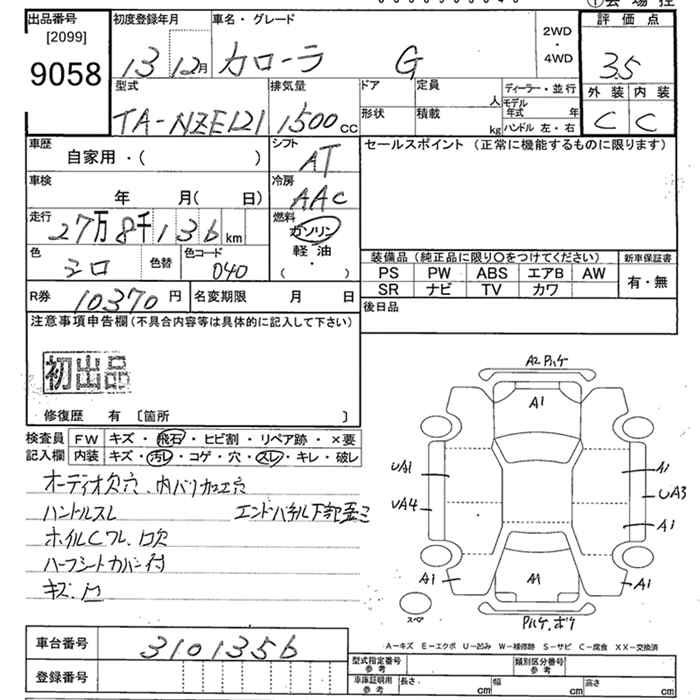 出品番号
[2099]
9058
初度登録年月
13 12月
車名・グレード
カローラ G
2WD
・
4WD
評価点
3.5
外装 内装
C C
型式
TA-NZE121
排気量
1500cc
ドア
定員 人
形状
積載 kg
ディーラー・並行
モデル年式 年
ハンドル 左・右
車歴
自家用・( )
シフト
AT
セールスポイント (正常に機能するものに限ります)
車検
年 月( 日)
冷房
AAC
走行
27万8千136km
燃料
ガソリン
軽油
( ・ )
色
シロ
色替
色コード
040
装備品 (純正品に限り○をつけてください)
新車保証書
PS PW ABS エアB AW
SR ナビ TV カワ
有・無
R券 10370円
名変期限 月 日
後日品
注意事項申告欄(不具合内容等は具体的に記入して下さい)
初出品
修復歴 有 〔箇所 〕
検査員
記入欄
FW キズ・飛石・ヒビ割・リペア跡・×要
内装 キズ・汚レ・コゲ・穴・スレ・キレ・破レ
オーディオ欠穴、内バリ加工穴
ハンドルスレ エンドパネル下部歪ミ
ホイルCワレ、1欠
ハーフシートカバー付
キズ、凹
A2 ハゲ
A1
UA1
A1
UA4
UA3
A1
A1
A1
A1
スペア
ハゲ、ボケ
車台番号 3101356
登録番号
A-キズ E-エクボ U-凹み W-補修跡 S-サビ C-腐食 XX-交換済
型式指定番号
参考
類別区分番号
参考
車庫証明用
参考
長さ cm
幅 cm
高さ cm